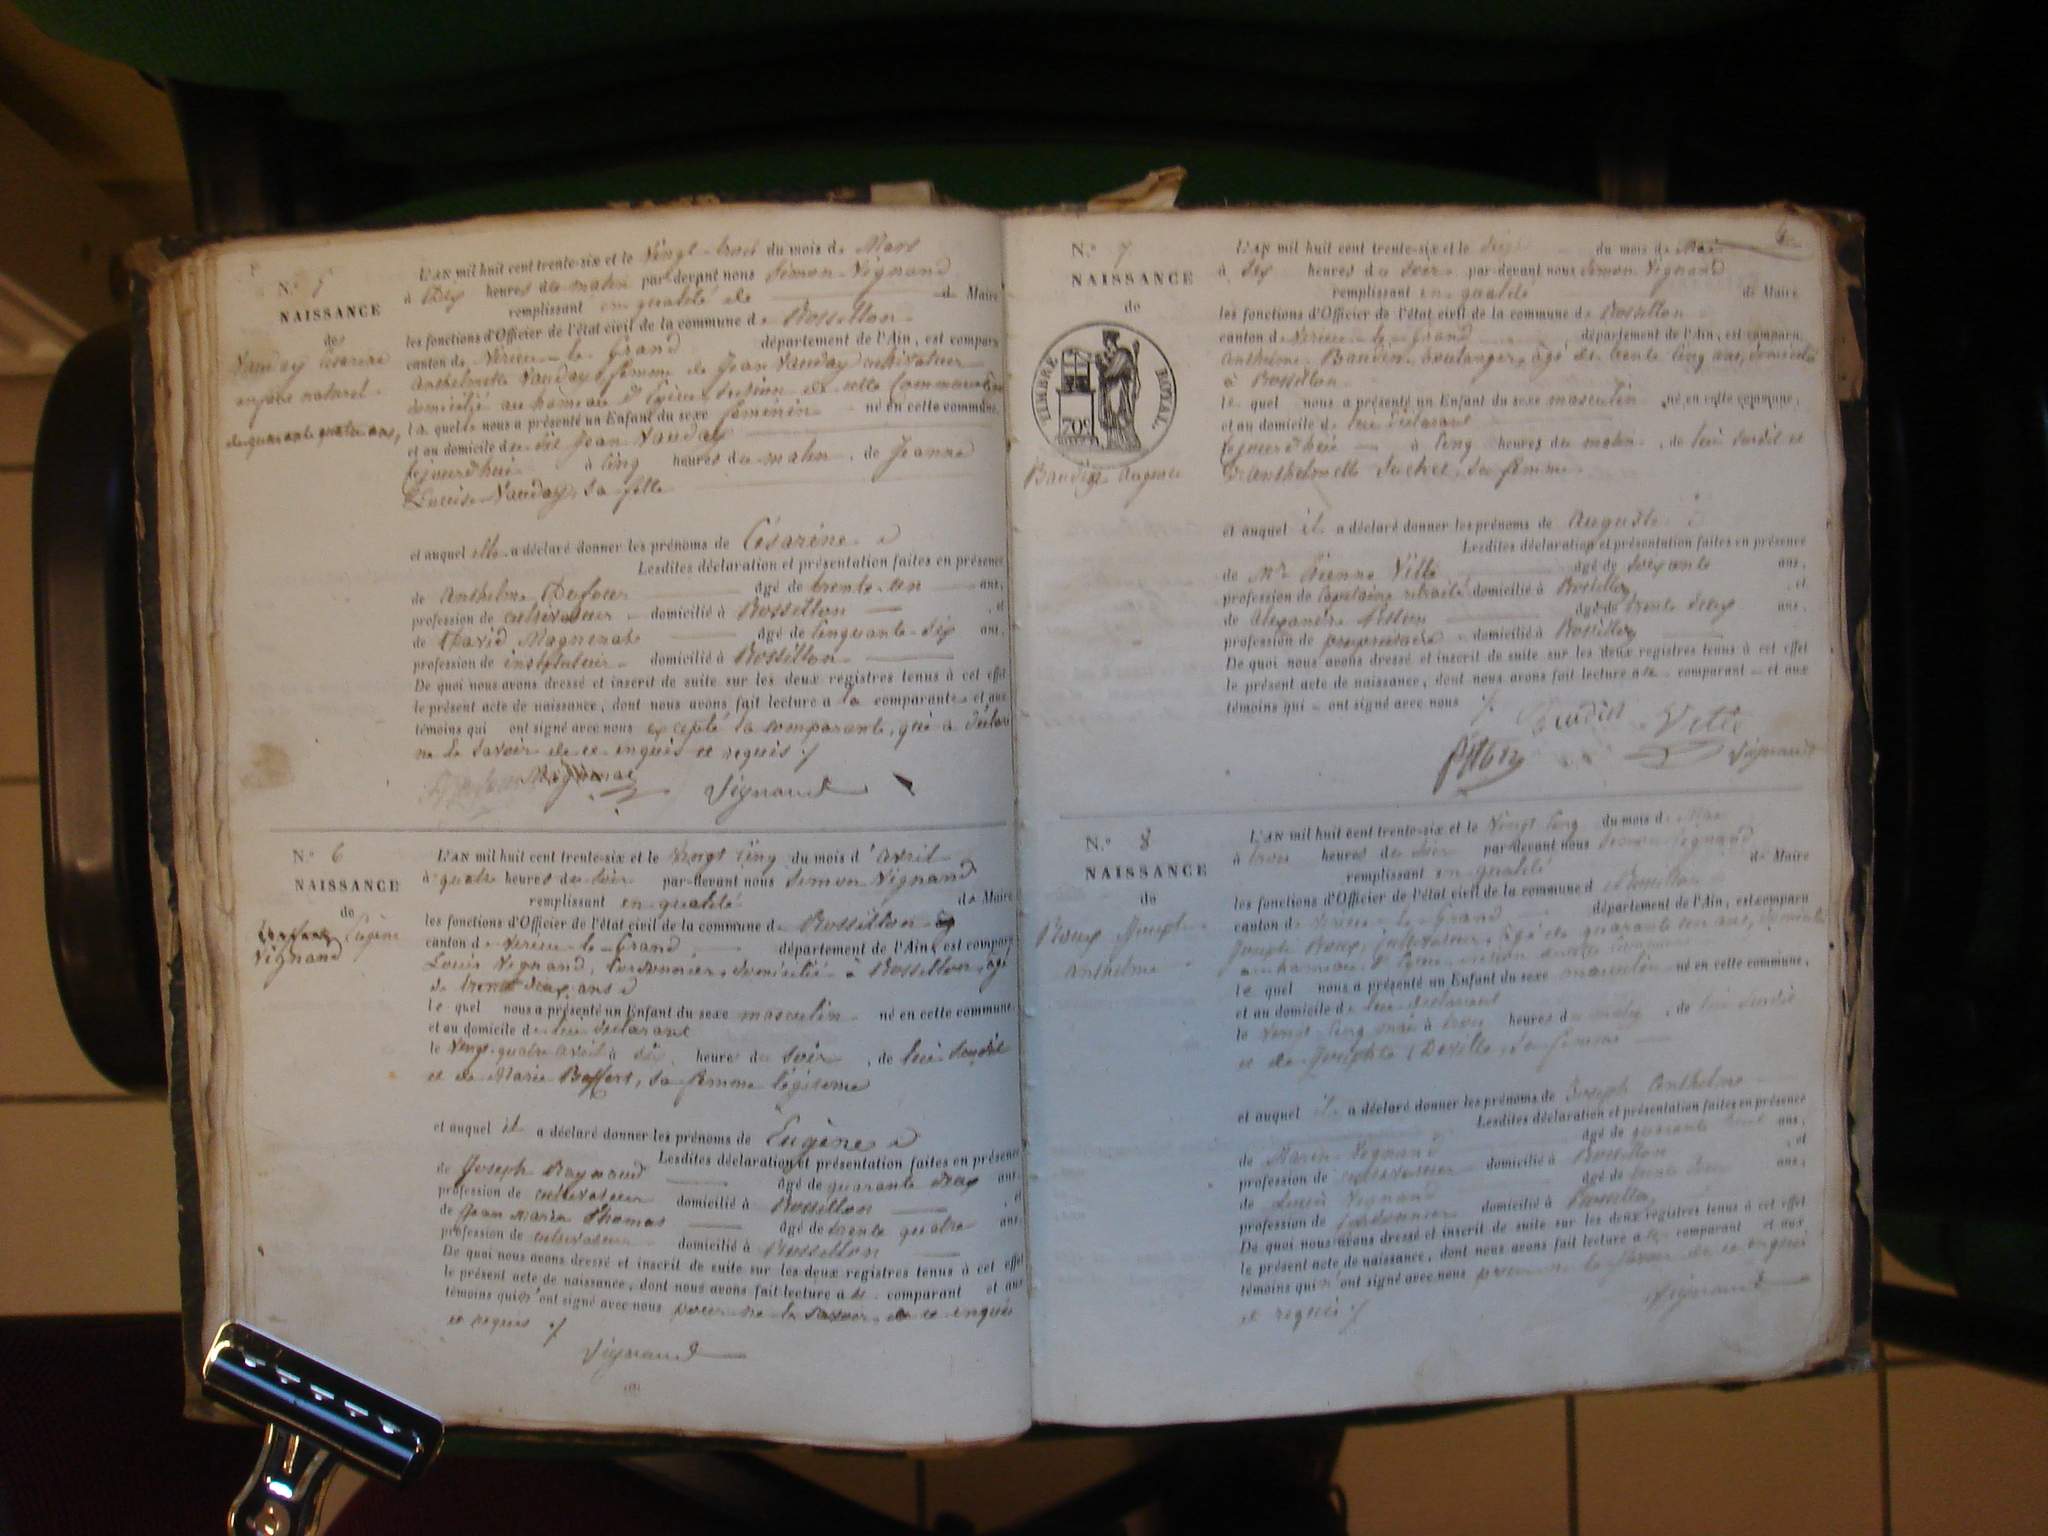 N.° 5
NAISSANCE
de
Vauday Césarine
enfant naturel
de quarante quatre ans,
L'AN mil huit cent trente-six et le Vingt-trois du mois de Mars
à Dix heures du matin par-devant nous Simon Vignand
remplissant en qualité de de Maire
les fonctions d'Officier de l'état civil de la commune de Rossillon
canton de Virieu-le-Grand département de l'Ain, est comparu
Anthelmette Vauday femme de Jean Vauday cultivateur
domicilié au hameau d' section de cette Commune
la quelle nous a présenté un Enfant du sexe féminin né en cette commune,
et au domicile du dit Jean Vauday
cejourd'hui à cinq heures du matin, de Jeanne
Louise Vauday, sa fille
et auquel elle a déclaré donner les prénoms de Césarine
Lesdites déclaration et présentation faites en présence
de Anthelme Dufour âgé de trente-un ans,
profession de cultivateur domicilié à Rossillon, et
de David Magninat âgé de cinquante-six ans,
profession de instituteur domicilié à Rossillon
De quoi nous avons dressé et inscrit de suite sur les deux registres tenus à cet effet
le présent acte de naissance, dont nous avons fait lecture à la comparante et aux
témoins qui ont signé avec nous excepté la comparante, qui a déclaré
ne le savoir de ce enquis et requis
Magninat Vignand
N.° 6
NAISSANCE
de
Eugène
Vignand
L'AN mil huit cent trente-six et le Vingt cinq du mois d'avril
à quatre heures du soir par-devant nous Simon Vignand
remplissant en qualité de Maire
les fonctions d'Officier de l'état civil de la commune de Rossillon
canton de Virieu-le-Grand département de l'Ain, est comparu
Louis Vignand, cordonnier, domicilié à Rossillon, âgé
de trente deux ans
le quel nous a présenté un Enfant du sexe masculin né en cette commune
et au domicile de lui déclarant
le Vingt-quatre avril à six heures du soir, de lui susdit
et de Marie Beffert, sa femme légitime
et auquel il a déclaré donner les prénoms de Eugène
Lesdites déclaration et présentation faites en présence
de Joseph Raymond âgé de quarante deux ans
profession de cultivateur domicilié à Rossillon, et
de Jean Marie Thomas âgé de trente quatre ans
profession de cultivateur domicilié à Rossillon
De quoi nous avons dressé et inscrit de suite sur les deux registres tenus à cet effet
le présent acte de naissance, dont nous avons fait lecture à le comparant et aux
témoins qui n'ont signé avec nous pour ne le savoir de ce enquis
et requis
Vignand
6
N.° 7
NAISSANCE
de
TIMBRE ROYAL
70c
Baudin Auguste
L'AN mil huit cent trente-six et le du mois de Mai
à six heures du soir par-devant nous Simon Vignand
remplissant en qualité de Maire
les fonctions d'Officier de l'état civil de la commune de Rossillon
canton de Virieu-le-Grand département de l'Ain, est comparu
Anthelme Baudin boulanger, âgé de trente cinq ans, domicilié
à Rossillon
le quel nous a présenté un Enfant du sexe masculin né en cette commune,
et au domicile de lui déclarant
cejourd'hui à cinq heures du matin, de lui susdit et
d'anthelmette Suchet, sa femme
et auquel il a déclaré donner les prénoms de Auguste
Lesdites déclaration et présentation faites en présence
de Mr Etienne Ville âgé de soixante ans,
profession de Capitaine retraité domicilié à Rossillon, et
de Alexandre âgé de trente deux ans,
profession de propriétaire domicilié à Rossillon
De quoi nous avons dressé et inscrit de suite sur les deux registres tenus à cet effet
le présent acte de naissance, dont nous avons fait lecture à le comparant et aux
témoins qui ont signé avec nous
Baudin Ville
Vignand
N.° 8
NAISSANCE
de
Roux Joseph
Anthelme
L'AN mil huit cent trente-six et le Vingt cinq du mois de Mai
à trois heures du soir par-devant nous Simon Vignand
remplissant en qualité de Maire
les fonctions d'Officier de l'état civil de la commune de Rossillon
canton de Virieu-le-Grand département de l'Ain, est comparu
Joseph Roux, cultivateur, âgé de quarante un ans, domicilié
au hameau d' section de cette Commune
le quel nous a présenté un Enfant du sexe masculin né en cette commune,
et au domicile de lui déclarant
le vingt-cinq mai à trois heures du matin, de lui susdit
et de Josephte Deville, sa femme
et auquel il a déclaré donner les prénoms de Joseph Anthelme
Lesdites déclaration et présentation faites en présence
de Marin Vignand âgé de quarante ans,
profession de cultivateur domicilié à Rossillon, et
de Louis Vignand âgé de trente deux ans,
profession de cordonnier domicilié à Rossillon
De quoi nous avons dressé et inscrit de suite sur les deux registres tenus à cet effet
le présent acte de naissance, dont nous avons fait lecture à le comparant et aux
témoins qui n'ont signé avec nous pour ne le savoir de ce enquis
et requis
Vignand